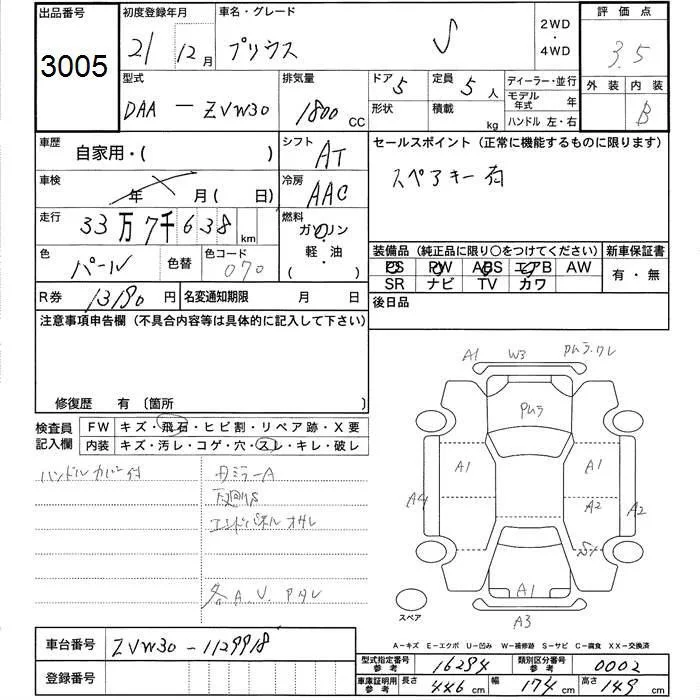 出品番号
3005
初度登録年月
21 12月
車名・グレード
プリウス S
2WD
・
4WD
評価点
3.5
型式
DAA - ZVW30
排気量
1800 CC
ドア 5
形状
定員 5 人
積載 kg
ディーラー・並行
モデル年式 年
ハンドル 左・右
外装 内装
B
車歴
自家用・( )
シフト
AT
セールスポイント(正常に機能するものに限ります)
スペアキー有
車検
年 月(日)
冷房
AAC
走行
33万7千638km
燃料
ガソリン
軽・油
( ・ )
色
パール
色替
色コード
070
装備品(純正品に限り○をつけてください)
新車保証書
PS PW ABS エアB AW
SR ナビ TV カワ
有・無
R券 13190円
名変通知期限 月 日
後日品
注意事項申告欄(不具合内容等は具体的に記入して下さい)
修復歴 有〔箇所 〕
検査員記入欄
FW キズ・飛石・ヒビ割・リペア跡・X要
内装 キズ・汚レ・コゲ・穴・スレ・キレ・破レ
ハンドルカバー付
ミラーA
下廻りS
エンドパネル オサレ
各A.U.Pタレ
A1 W3 PムラワレPムラ
A1
A1
A4
A2
A2
S1
A1
A3
スペア
A-キズ E-エクボ U-凹み W-補修跡 S-サビ C-腐食 XX-交換済
車台番号 ZVW30-1129918
登録番号
型式指定番号参考 16294
類別区分番号参考 0002
車庫証明用参考 長さ 446cm 幅 174cm 高さ 149cm